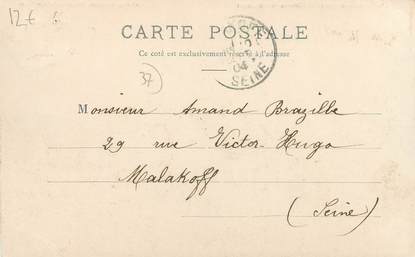 12€
CARTE POSTALE
Ce côté est exclusivement réservé à l'adresse
04
SEINE
37
Monsieur Amand Brazille
29 rue Victor-Hugo
Malakoff
(Seine)